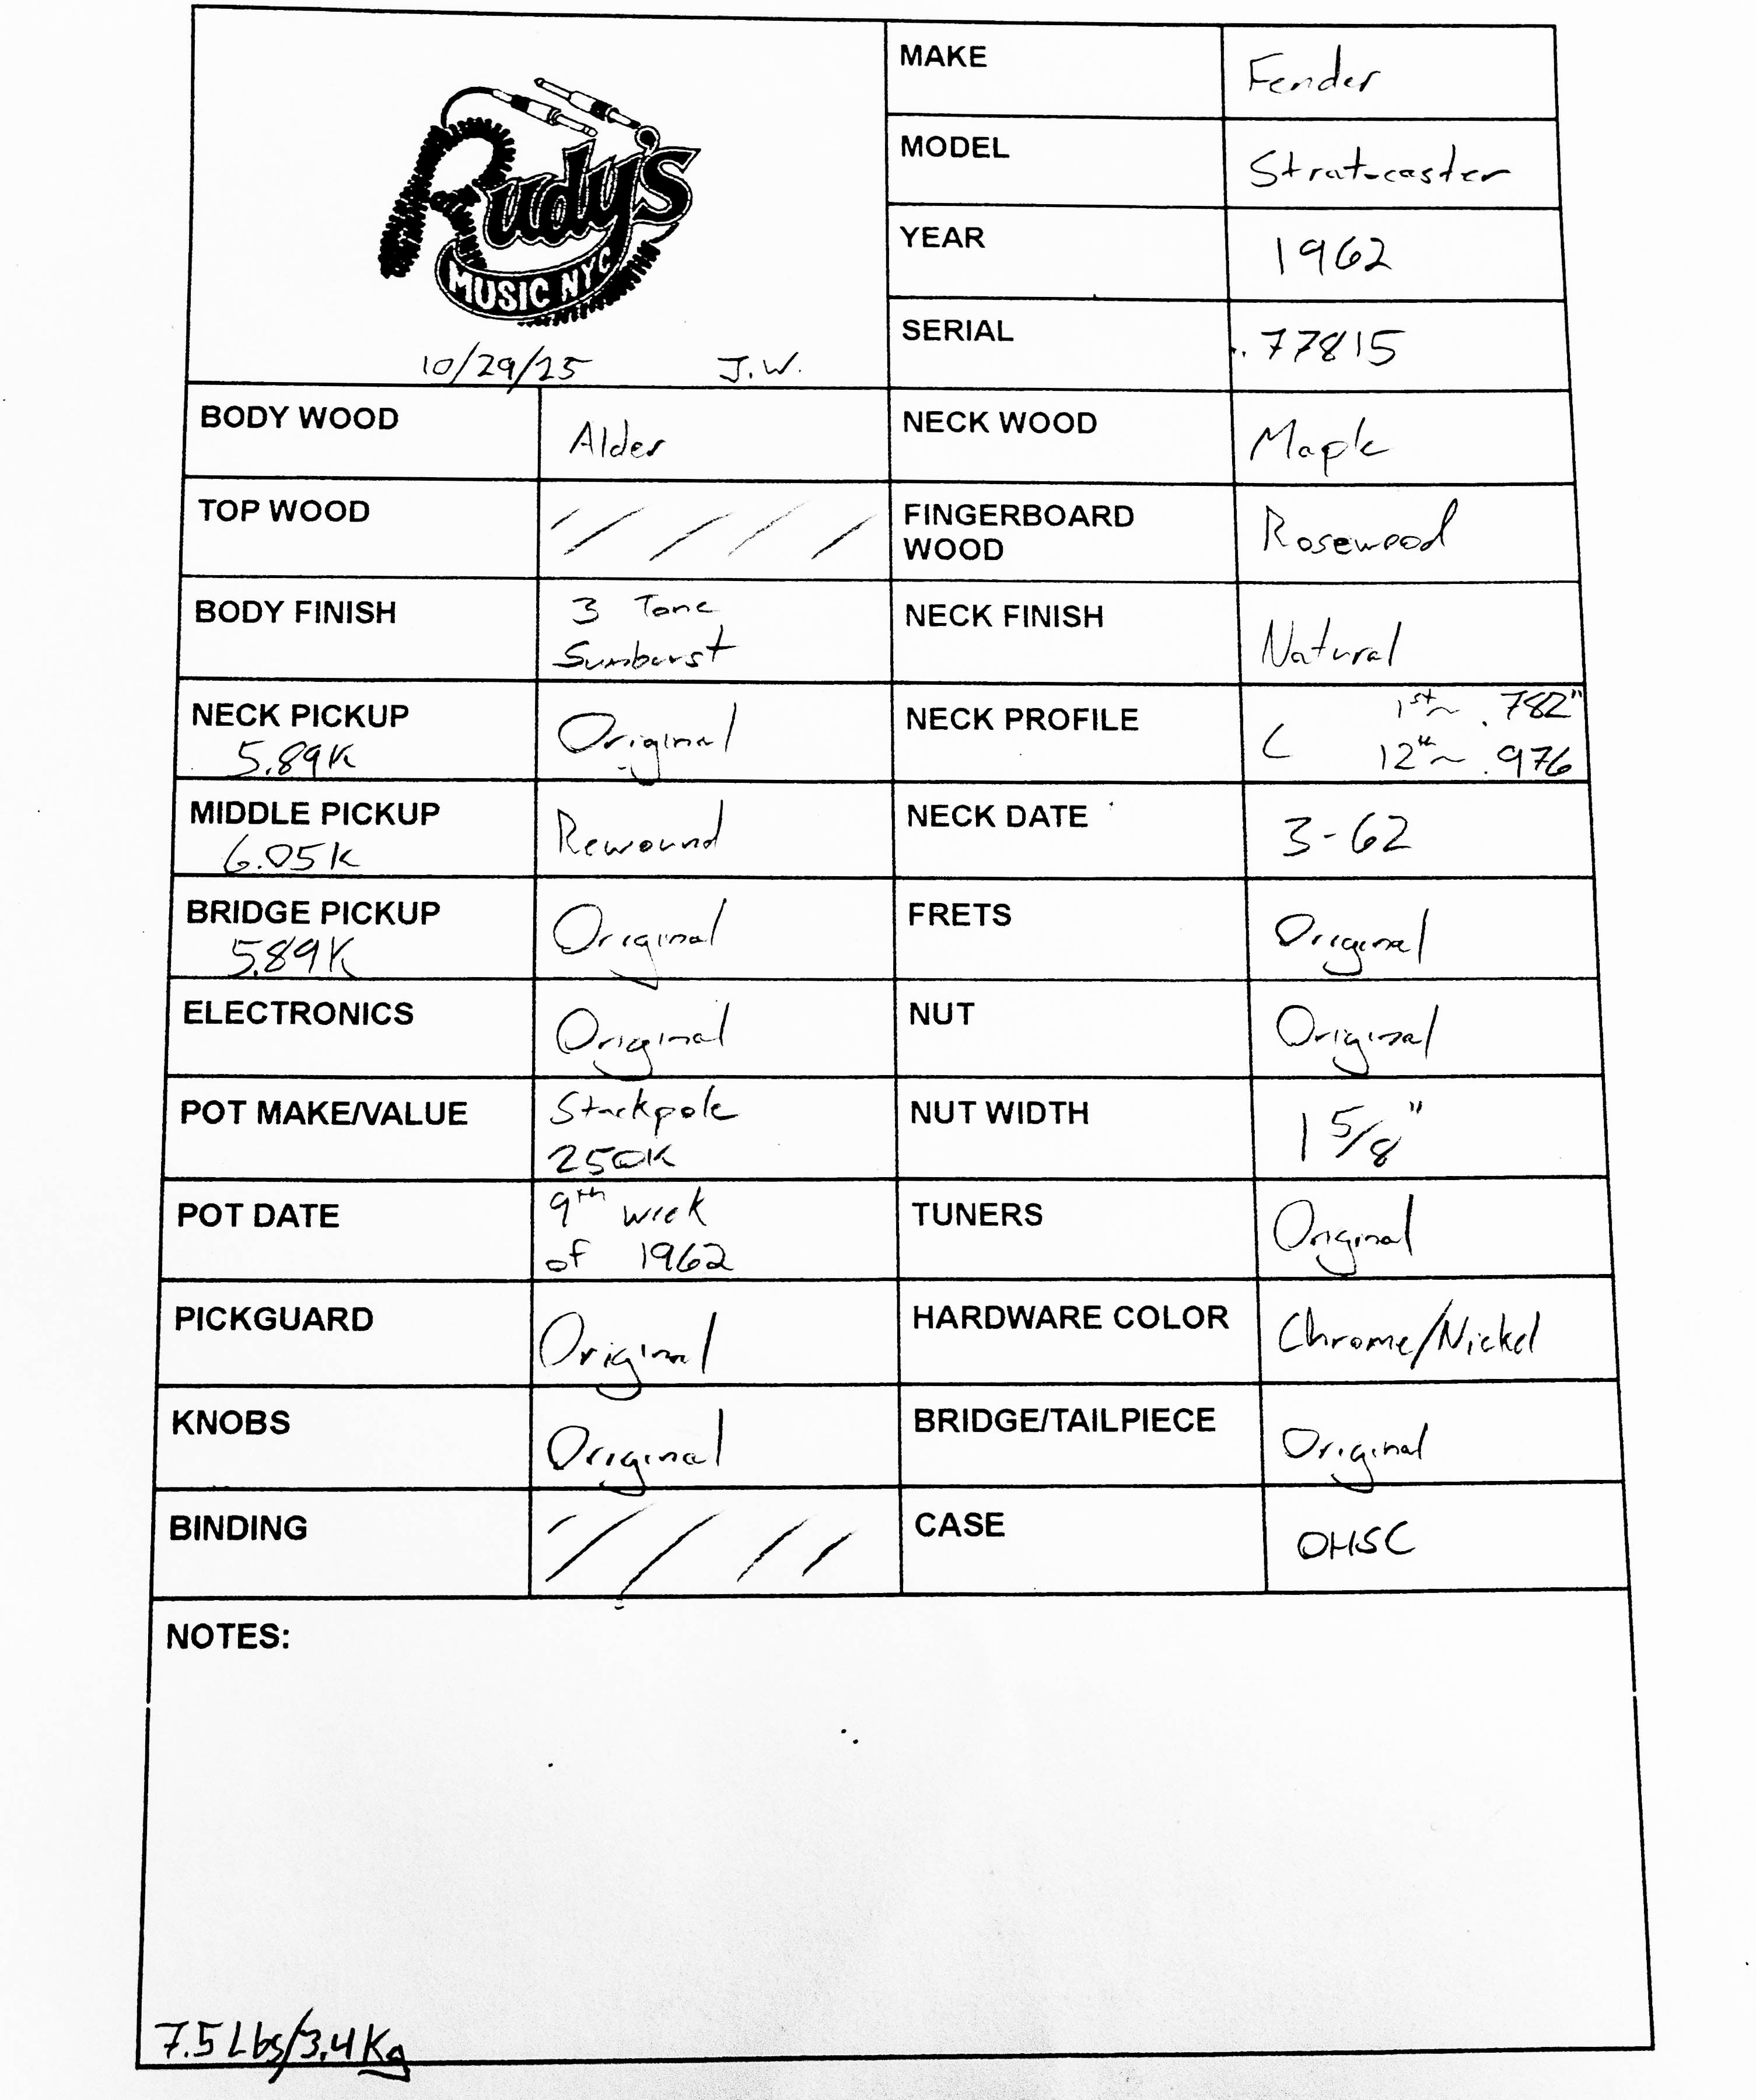 Rudy's
MUSIC NYC
10/29/25 J.W.
MAKE Fender
MODEL Stratocaster
YEAR 1962
SERIAL 77815
BODY WOOD Alder
NECK WOOD Maple
TOP WOOD
FINGERBOARD
WOOD Rosewood
BODY FINISH 3 Tone
Sunburst
NECK FINISH Natural
NECK PICKUP Original
5.89K
NECK PROFILE C 1st ~ .782"
12th ~ .976
MIDDLE PICKUP Rewound
6.05K
NECK DATE 3-62
BRIDGE PICKUP Original
5.89K
FRETS Original
ELECTRONICS Original
NUT Original
POT MAKE/VALUE Stackpole
250K
NUT WIDTH 1 5/8"
POT DATE 9th week
of 1962
TUNERS Original
PICKGUARD Original
HARDWARE COLOR Chrome/Nickel
KNOBS Original
BRIDGE/TAILPIECE Original
BINDING
CASE OHSC
NOTES:
7.5 Lbs/3.4 Kg